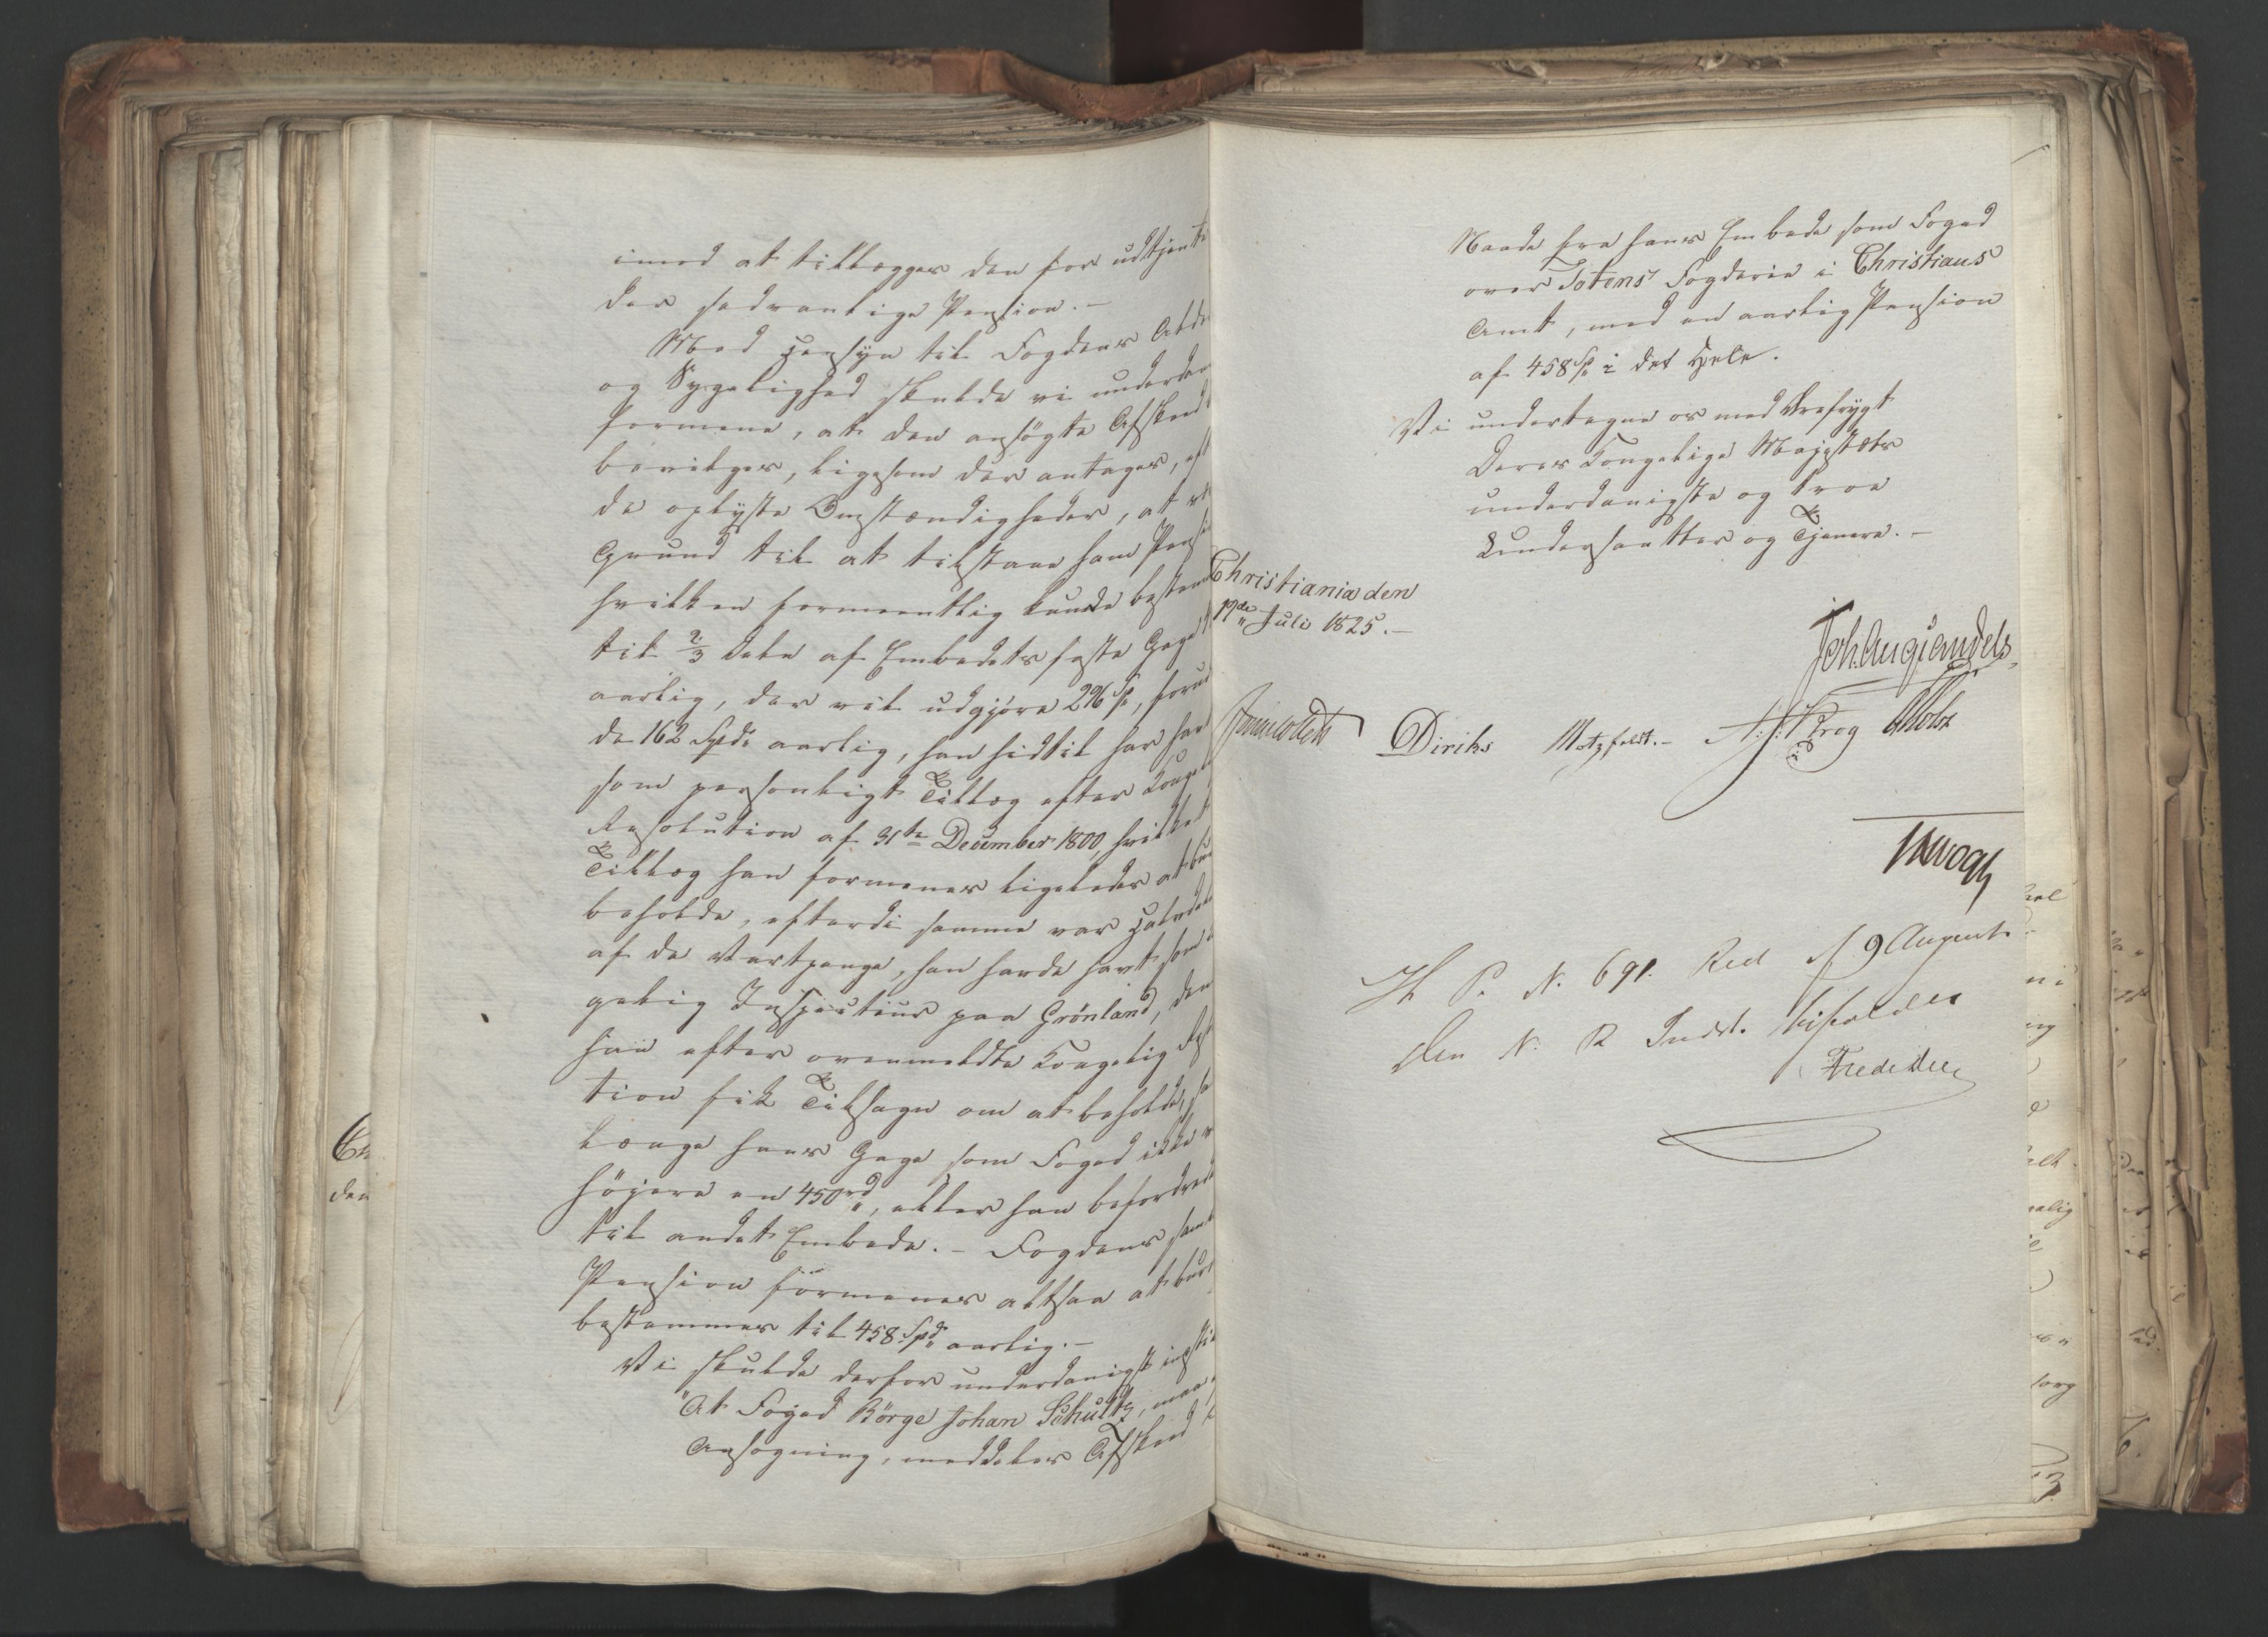 imod at tillægges den for udtjente
der sædvanlige Pension. –
Med Hensÿn til Fogdens Alder
og Sygelighed skulde vi underdan
formene, at den ansögte Afskeed
bevilges, ligesom der antages, eft
de oplÿste Omstændigheder, at være
Grund til at tilstaae ham Pension
hvilken formeentlig kunde bestem
til 2/3 Dele af Embedets faste Gage
aarlig, der vil udgjöre 296 Sp, forud
de 162 Spd aarlig, han hidtil har havt
som personligt Tillæg efter Kongel
Resolution af 31te December 1800, hvilket
Tillæg han formenes ligeledes at bur
beholde, efterdi samme var Halvdele
af de Vartpenge, han havde havt som
gelig Inspecteur paa Grönland, den
han efter ovenmeldte Kongelig Reso
tion fik Tilsagn om at beholde, saa
længe hans Gage som Foged ikke var
höjere en 450 rd, eller han befordredes
til andet Embede. – Fogdens saml
Pension formenes altsaa at bur
bestemmes til 458 Spd aarlig. –
Vi skulde derfor underdanigst instil
"At Foged Börge Johan Schultz, maa
Ansögning, meddeles Afskeed i
Naade fra hans Embede som Foged
over Totens Fogderie i Christians
Amt, med en aarlig Pension
af 458 Sp i det Hele.
Vi undertegne os med Ærefrygt
Deres Kongelige Majestæts
underdanigste og troe
Undersaatter og Tjenere. –
Christiania den
19de Juli 1825. –
Joh. Aug. Sandels
Sommerfeldt Diriks Motzfeldt. – A: J: Krog Holst
JHVogt
H. P. N. 691. Red. f 9 August
Den N. R. Indst. bifaldes